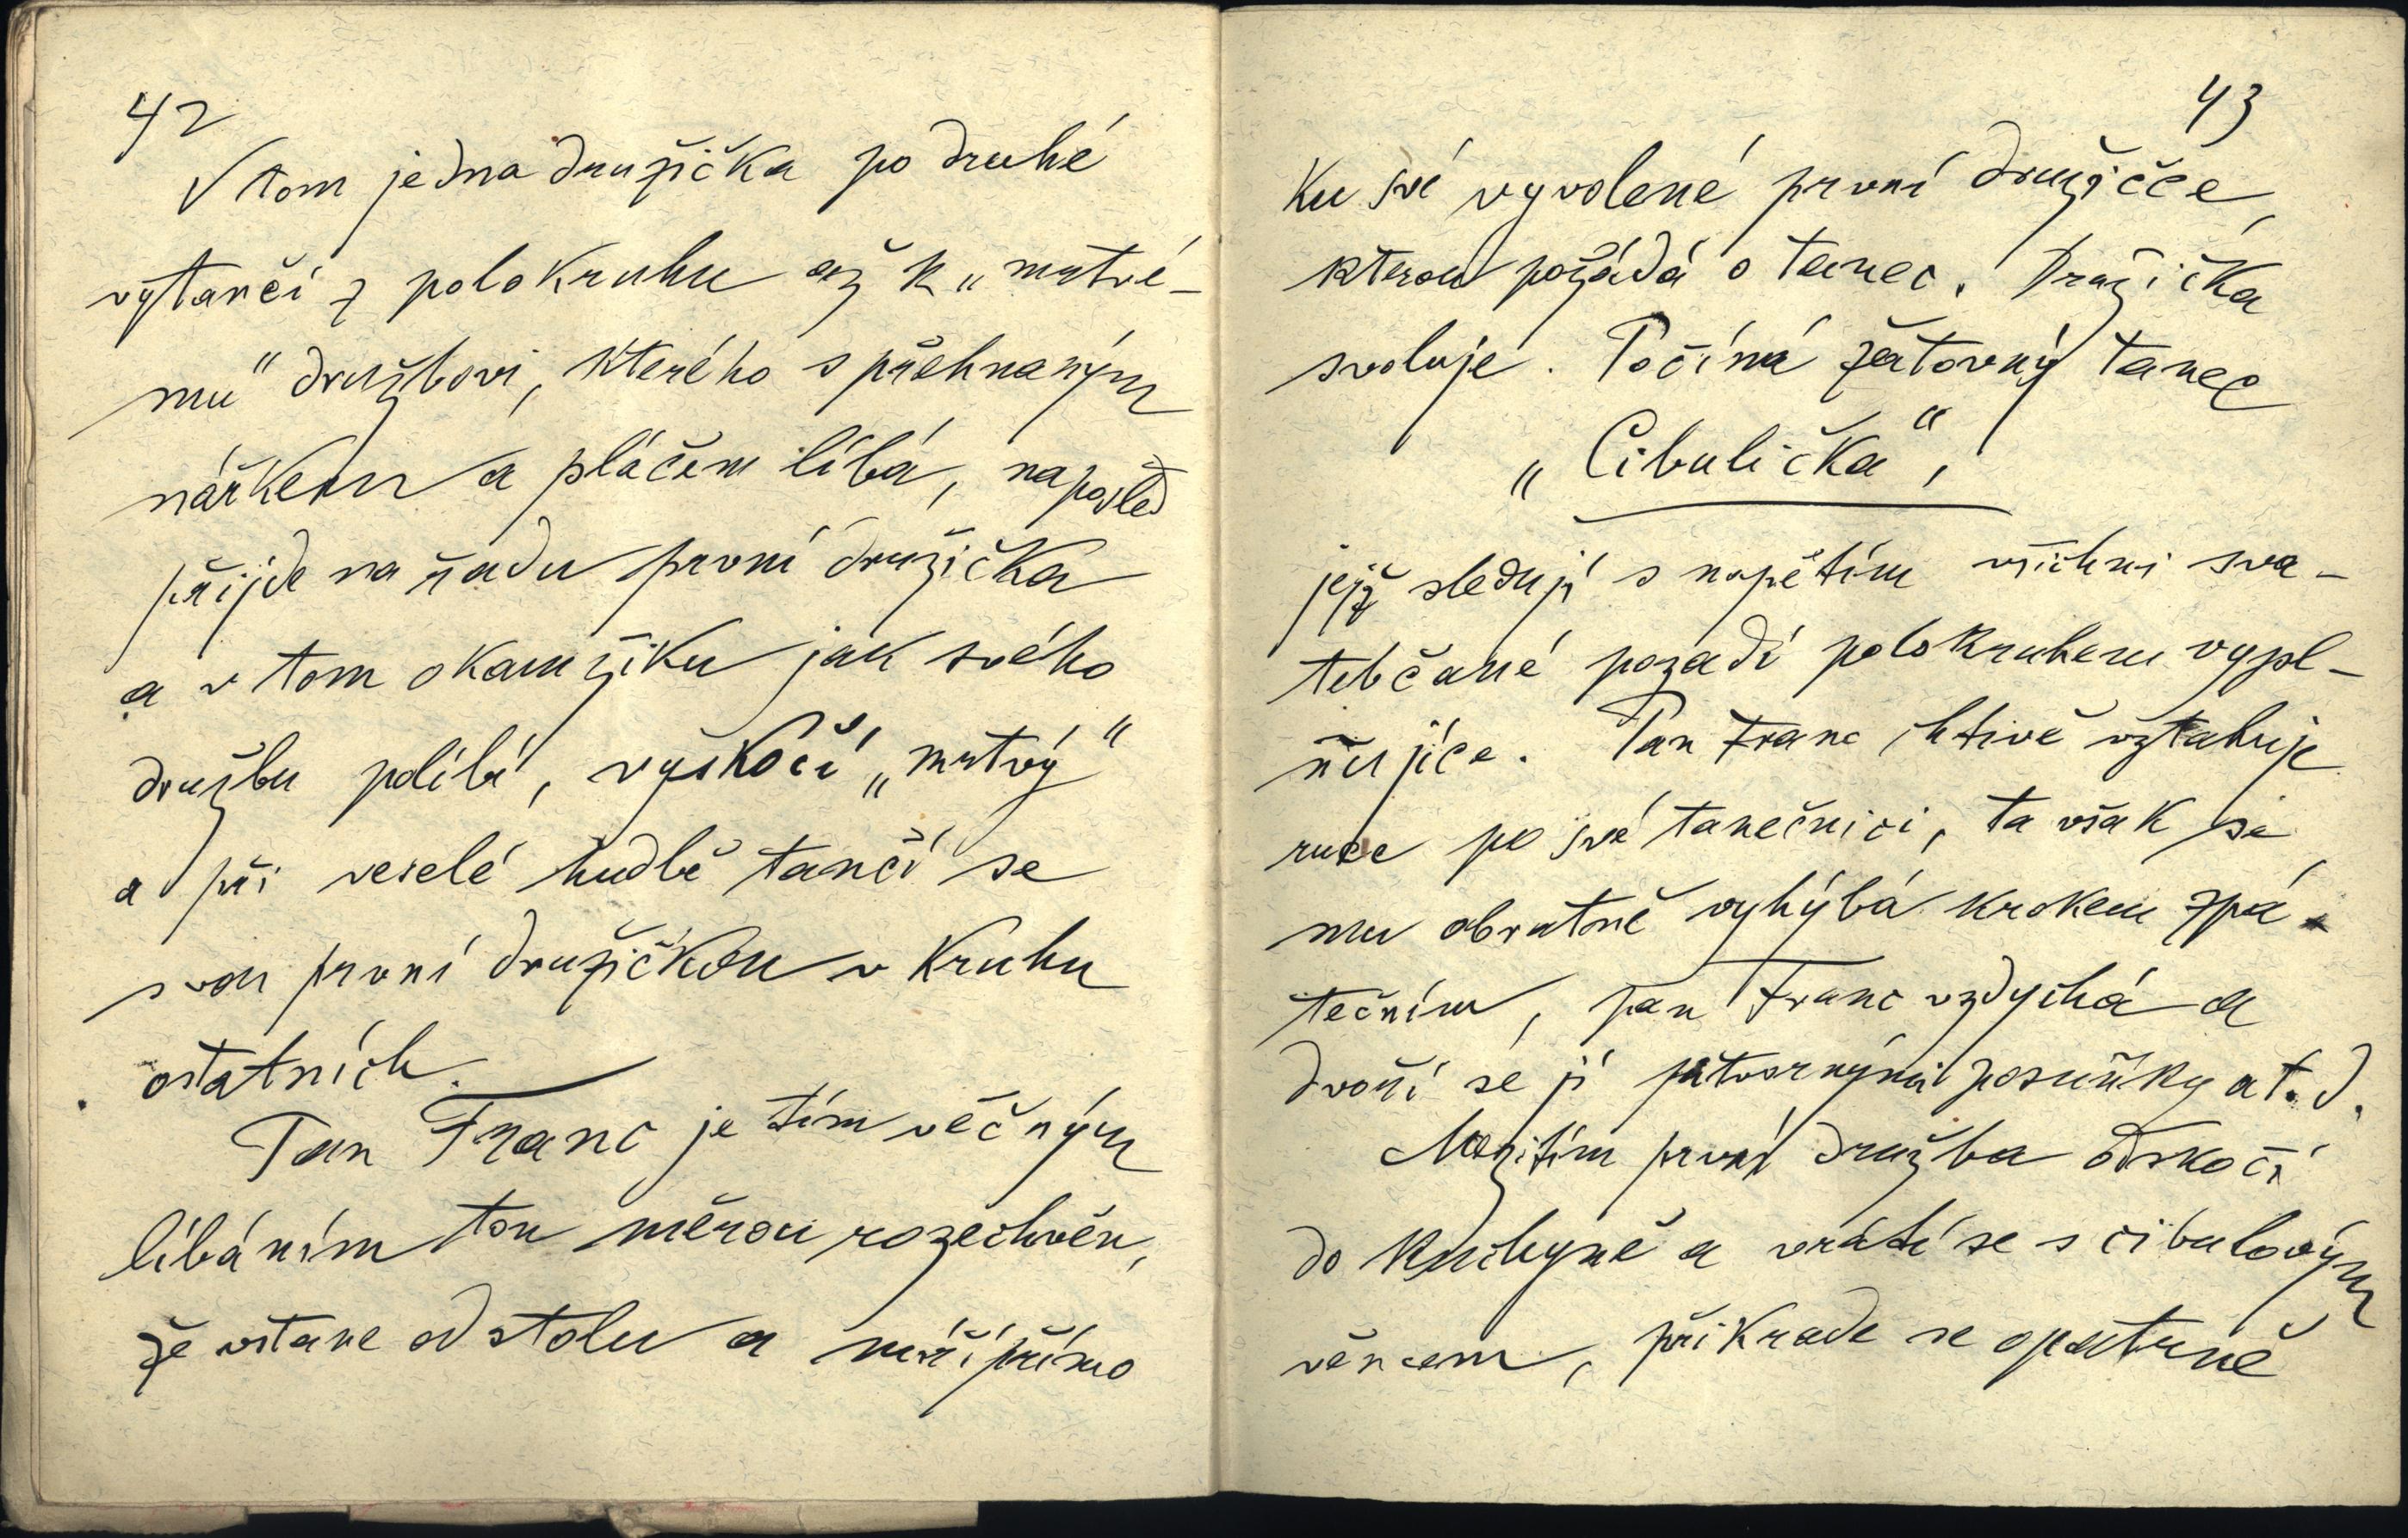 42
V tom jedna družička po druhé
vytančí z polokruhu až k „mrtvé-
mu" družbovi, kterého s přehnaným
nářkem a pláčem líbá, naposled
přijde na řadu první družička
a v tom okamžiku jak svého
družbu políbí, vyskočí „mrtvý"
a při veselé hudbě tančí se
svou první družičkou v kruhu
ostatních.
Pan Franc je tím věčným
líbáním tou měrou rozechvěn,
že vstane od stolu a míří přímo
43
ku své vyvolené první družičce,
kterou požádá o tanec. Družička
svoluje. Počíná žertovný tanec
„Cibulička",
jejž sledují s napětím všichni sva-
tebčané pozadí polokruhem vypl-
ňujíce. Pan Franc chtivě vztahuje
ruce po své tanečnici, ta však se
mu obratně vyhýbá krokem zpá-
tečním, pan Franc vzdychá a
dvoří se jí potvornými posuňky at.d.
Mezitím první družba odskočí
do kuchyně a vrátí se s cibulovým
věncem, přikrade se opatrně